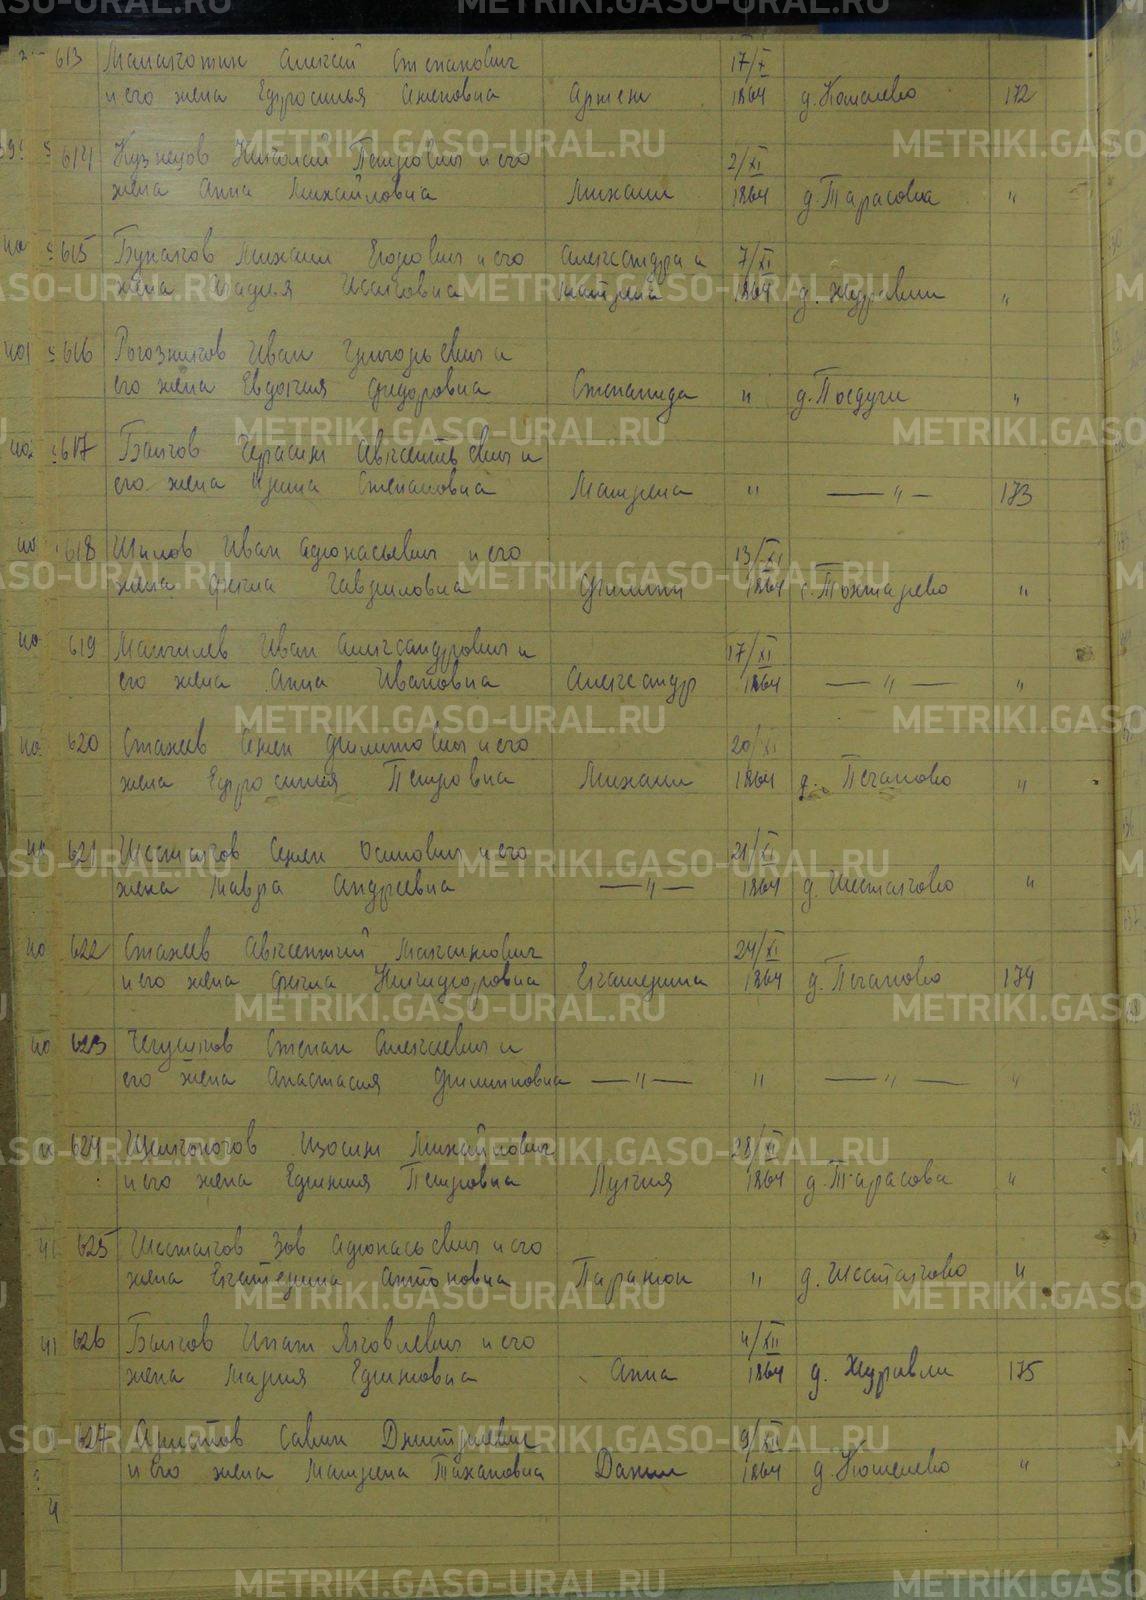 METRIKI.GASO-URAL.RU METRIKI.GASO
613 Алексей Степанович 17/X
и его жена Артем 1864 д. Кошелево 172
614 Кузнецов Николай Петрович и его 2/XI
жена Анна Михайловна Михаил 1864 д. Тарасовка "
615 Михаил Егорович и его Александра и 7/XI
жена Мария Исаковна Матрена 1864 д. Журавли "
616 Рогозников Иван Григорьевич и
его жена Евдокия Фидоровна Степанида " д. Поедуги "
617 Быков Герасим Авксентьевич и
его жена Ирина Степановна Матрена " — " — 173
618 Шилов Иван Афонасьевич и его 13/XI
жена Фекла Гавриловна Филипп 1864 с. Тохтарево "
619 Иван Александрович и 17/XI
его жена Анна Ивановна Александр 1864 — " — "
620 Стахеев Семен Филиппович и его 20/XI
жена Ефросиния Петровна Михаил 1864 д. "
621 Шестаков Семен Осипович и его 21/XI
жена Мавра Андреевна — " — 1864 д. Шестаково "
622 Стахеев Авксентий Максимович 24/XI
и его жена Фекла Никифоровна Екатерина 1864 д. 174
623 Степан Алексеевич и
его жена Анастасия Филипповна — " — " — " — "
624 Щелконогов Михайлович 28/XI
и его жена Ефимия Петровна Лукия 1864 д. Тарасова "
625 Шестаков Зов Афонасьевич и его
жена Екатерина Антоновна Парамон " д. Шестаково "
626 Быков Ипат Яковлевич и его 4/XII
жена Мария Ефимовна Анна 1864 д. Журавли 175
627 Аристов Савин Дмитриевич 9/XII
и его жена Матрена Данил 1864 д. Кошелево "
METRIKI.GASO-URAL.RU METRIKI.GASO